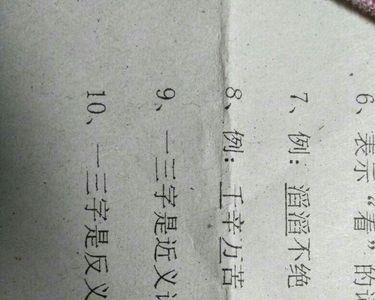 6、表示“看”的
7、例：滔滔不绝
8、例：千辛万苦
9、一三字是近义
10、一三字是反义